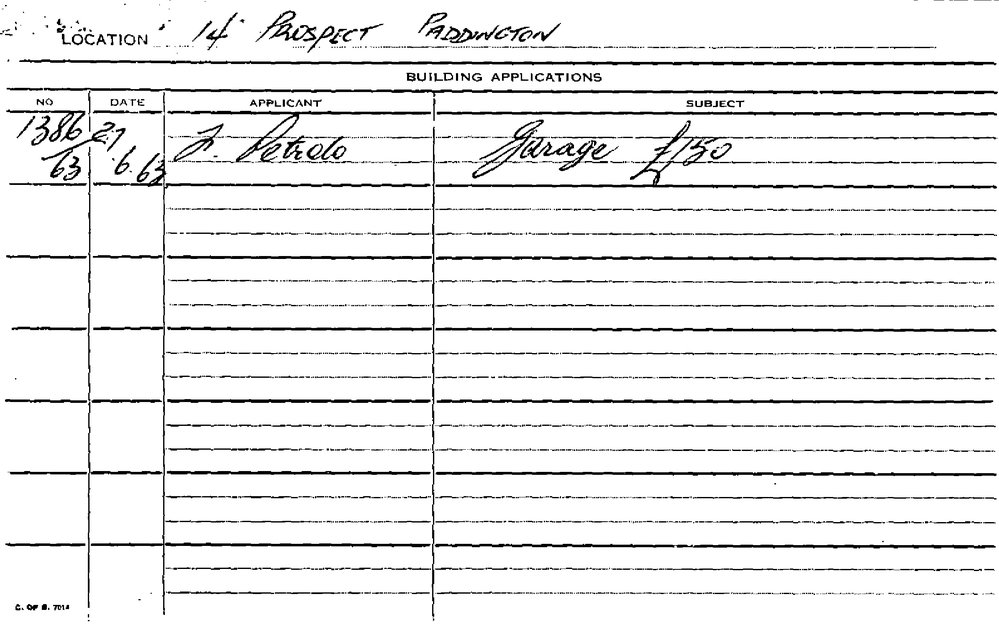 LOCATION 14 PROSPECT PADDINGTON
BUILDING APPLICATIONS
NO DATE APPLICANT SUBJECT
1386 27
/63 6.63 Garage £150
C. OF S. 7014